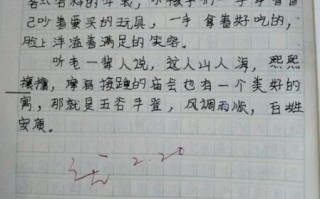 各式各样的年歌，小孩子们一手拿着自
己吵着要买的玩具，一手拿着好吃的，
脸上洋溢着满足的笑容。
听老一辈人说，这人山人海，熙熙
攘攘，摩肩接踵的庙会也有一个美好的
寓，那就是五谷丰登，风调雨顺，百姓
安康。
2.20